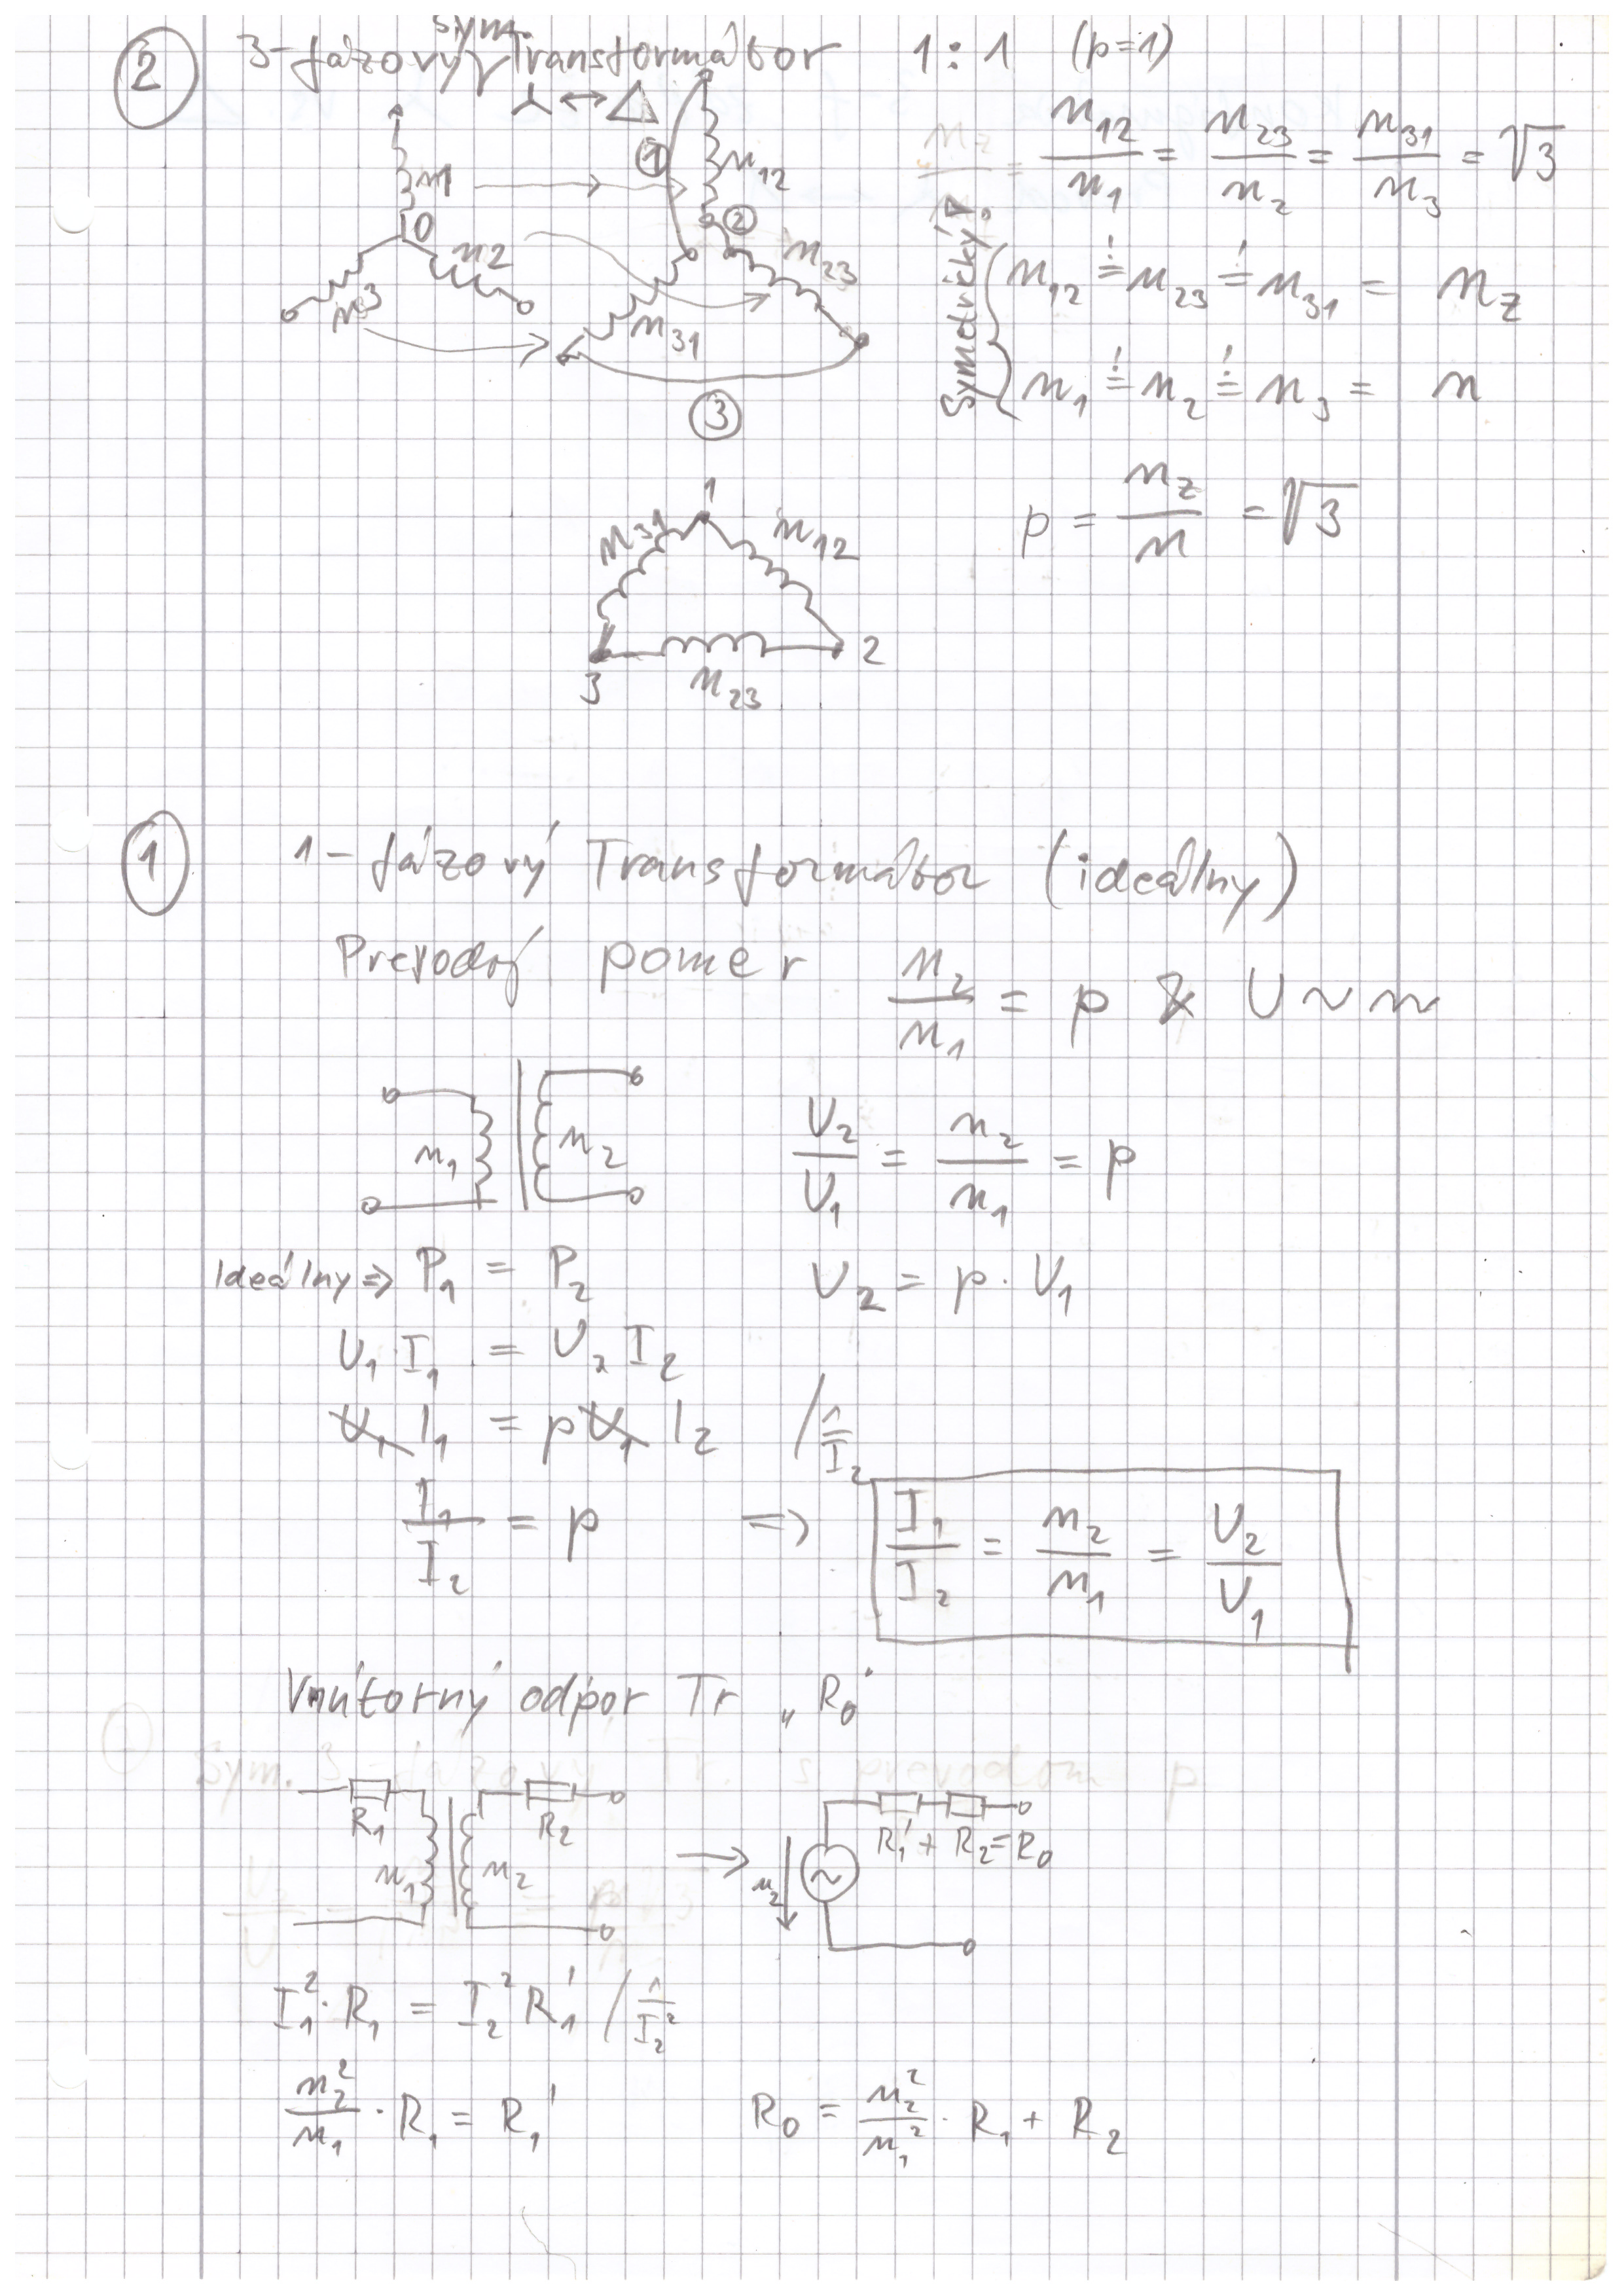 ② 3-fázový sym. Transformátor 1:1 (p=1)
⅄ ↔ △
n1
0
n2
n3
①
n12
②
n23
n31
③
n12/n1 = n23/n2 = n31/n3 = √3
Symetrický!
n12 ≐ n23 ≐ n31 = nz
n1 ≐ n2 ≐ n3 = n
p = nz/n = √3
1
n31
n12
3
2
n23
① 1-fázový Transformátor (ideálny)
Prevodný pomer n2/n1 = p & U ~ n
n1
n2
U2/U1 = n2/n1 = p
Ideálny ⇒ P1 = P2
U2 = p · U1
U1 · I1 = U2 I2
U1 I1 = p U1 I2 / 1/I2
I1/I2 = p ⇒ I1/I2 = n2/n1 = U2/U1
Vnútorný odpor Tr „R0"
R1
R2
n1
n2
→
u2
~
R1' + R2 = R0
I1² · R1 = I2² R1' / 1/I2²
n2²/n1 · R1 = R1'
R0 = n2²/n1² · R1 + R2